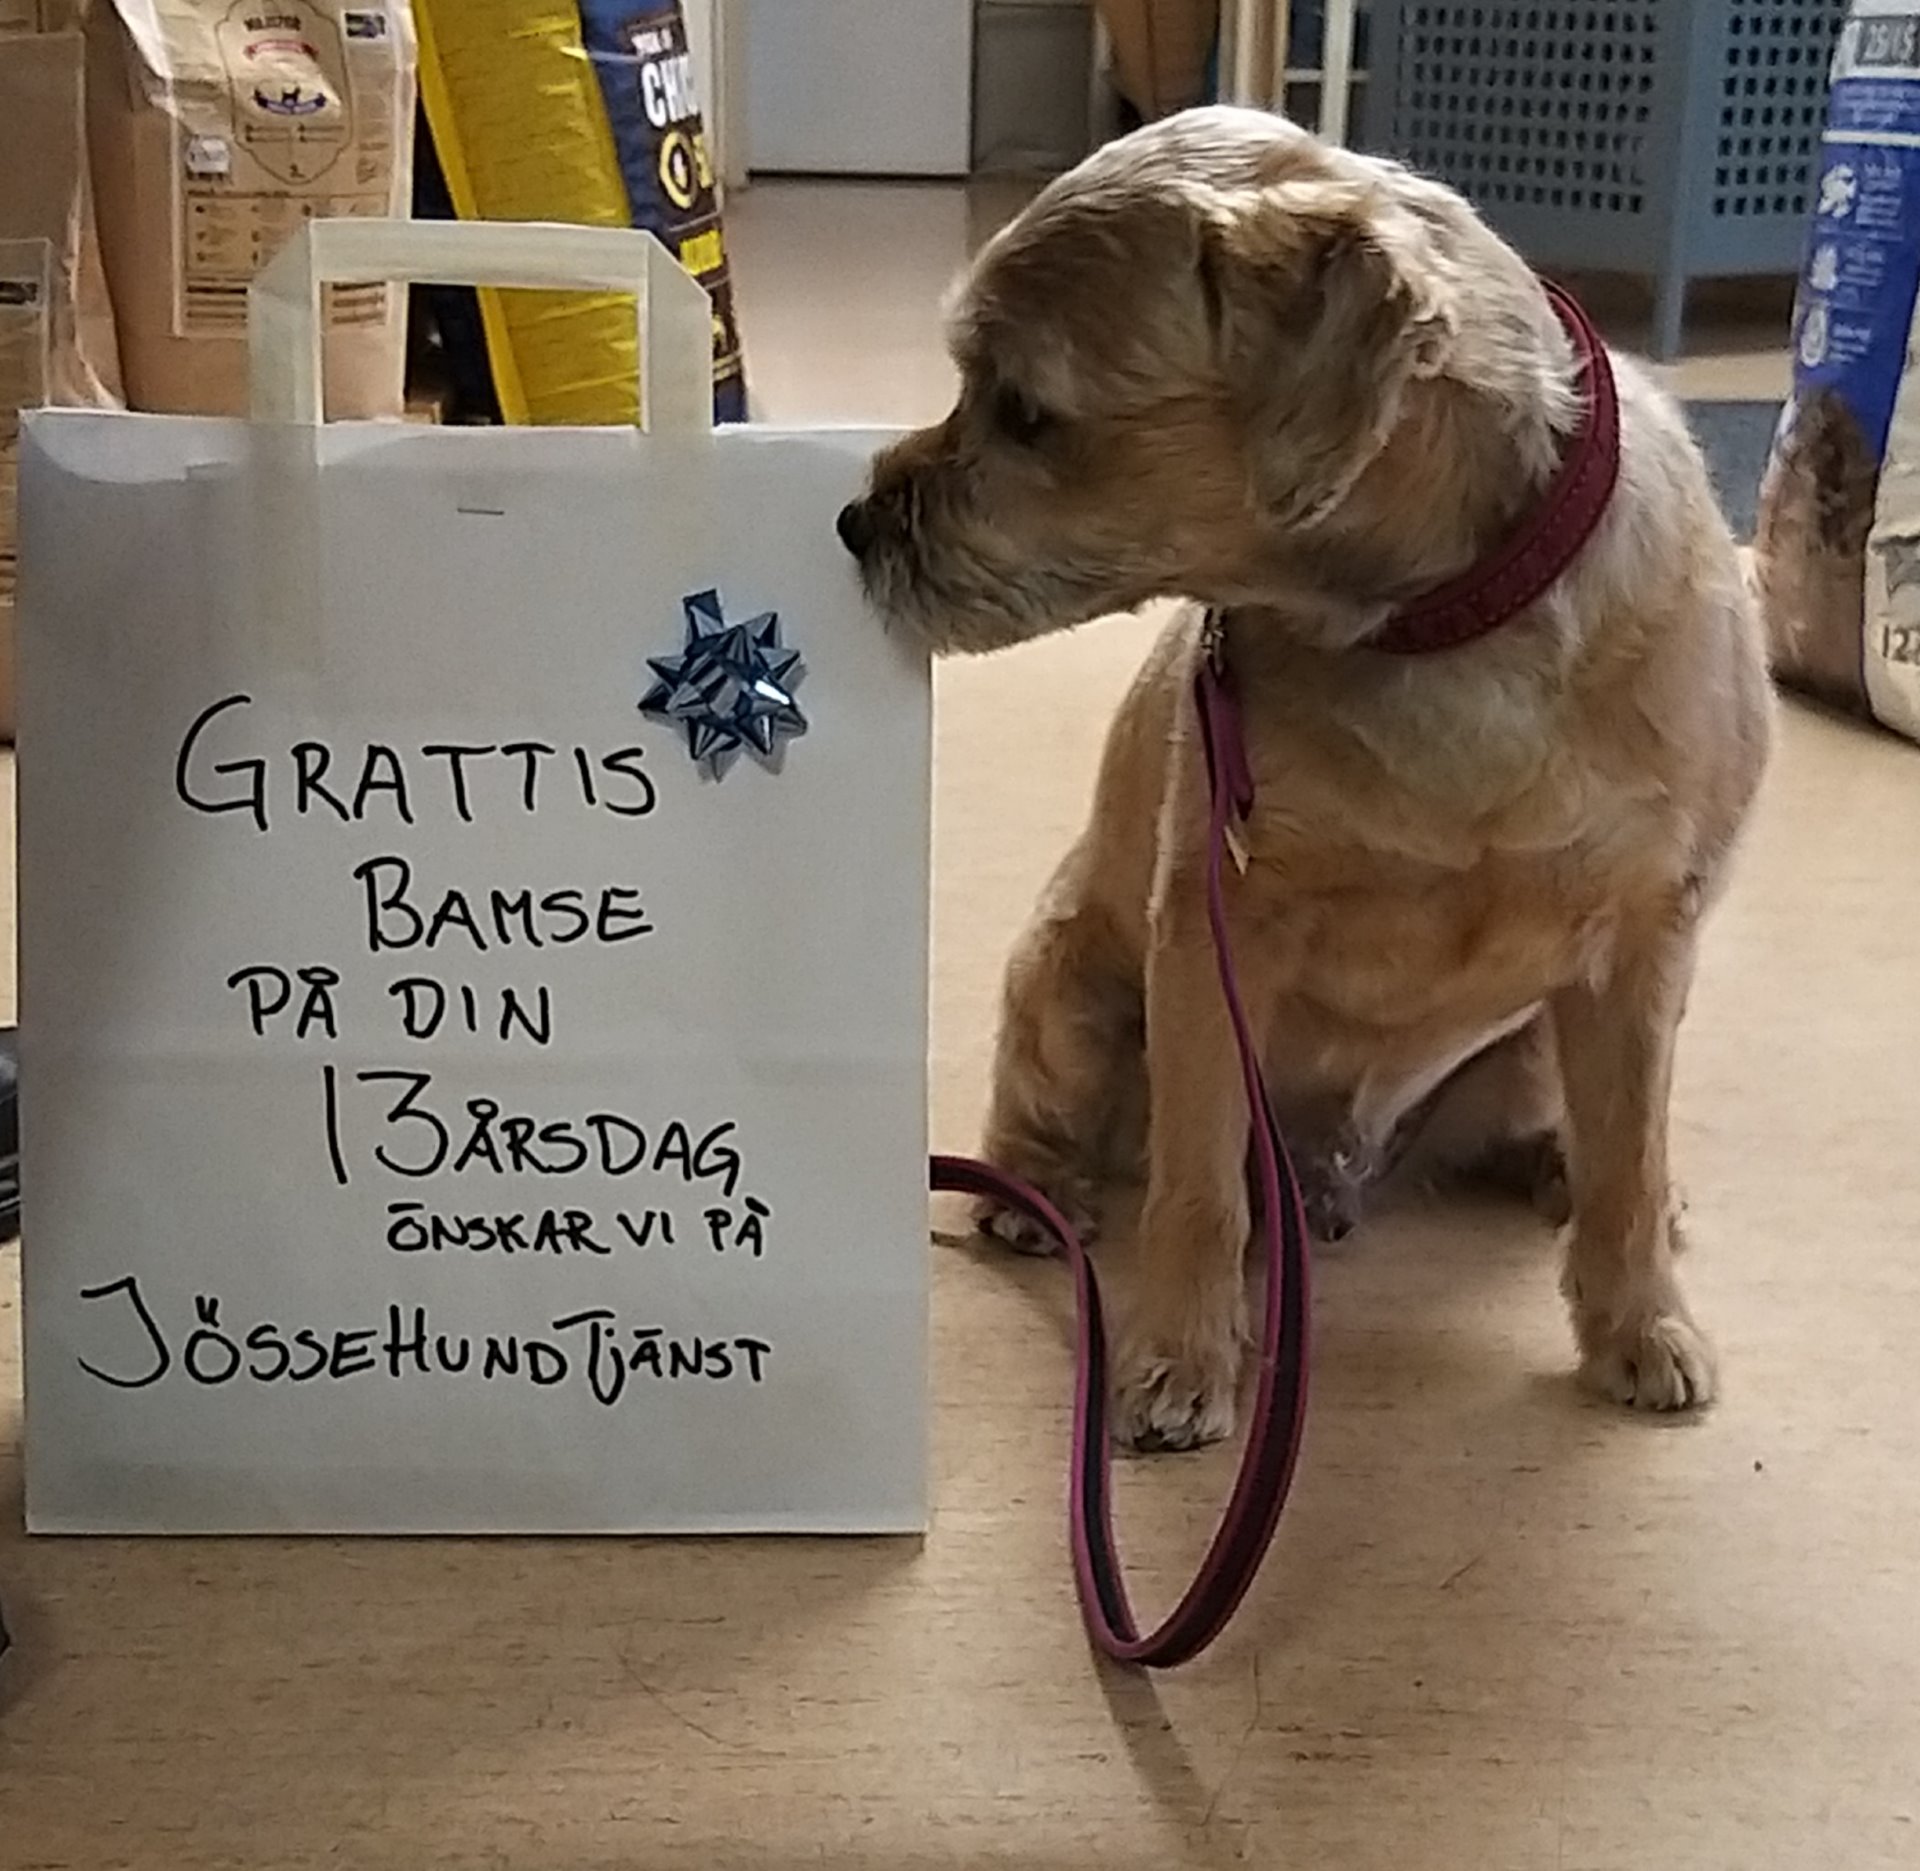 GRATTIS
BAMSE
PÅ DIN
13 ÅRSDAG
ÖNSKAR VI PÅ
JÖSSEHUNDTJÄNST
25/15